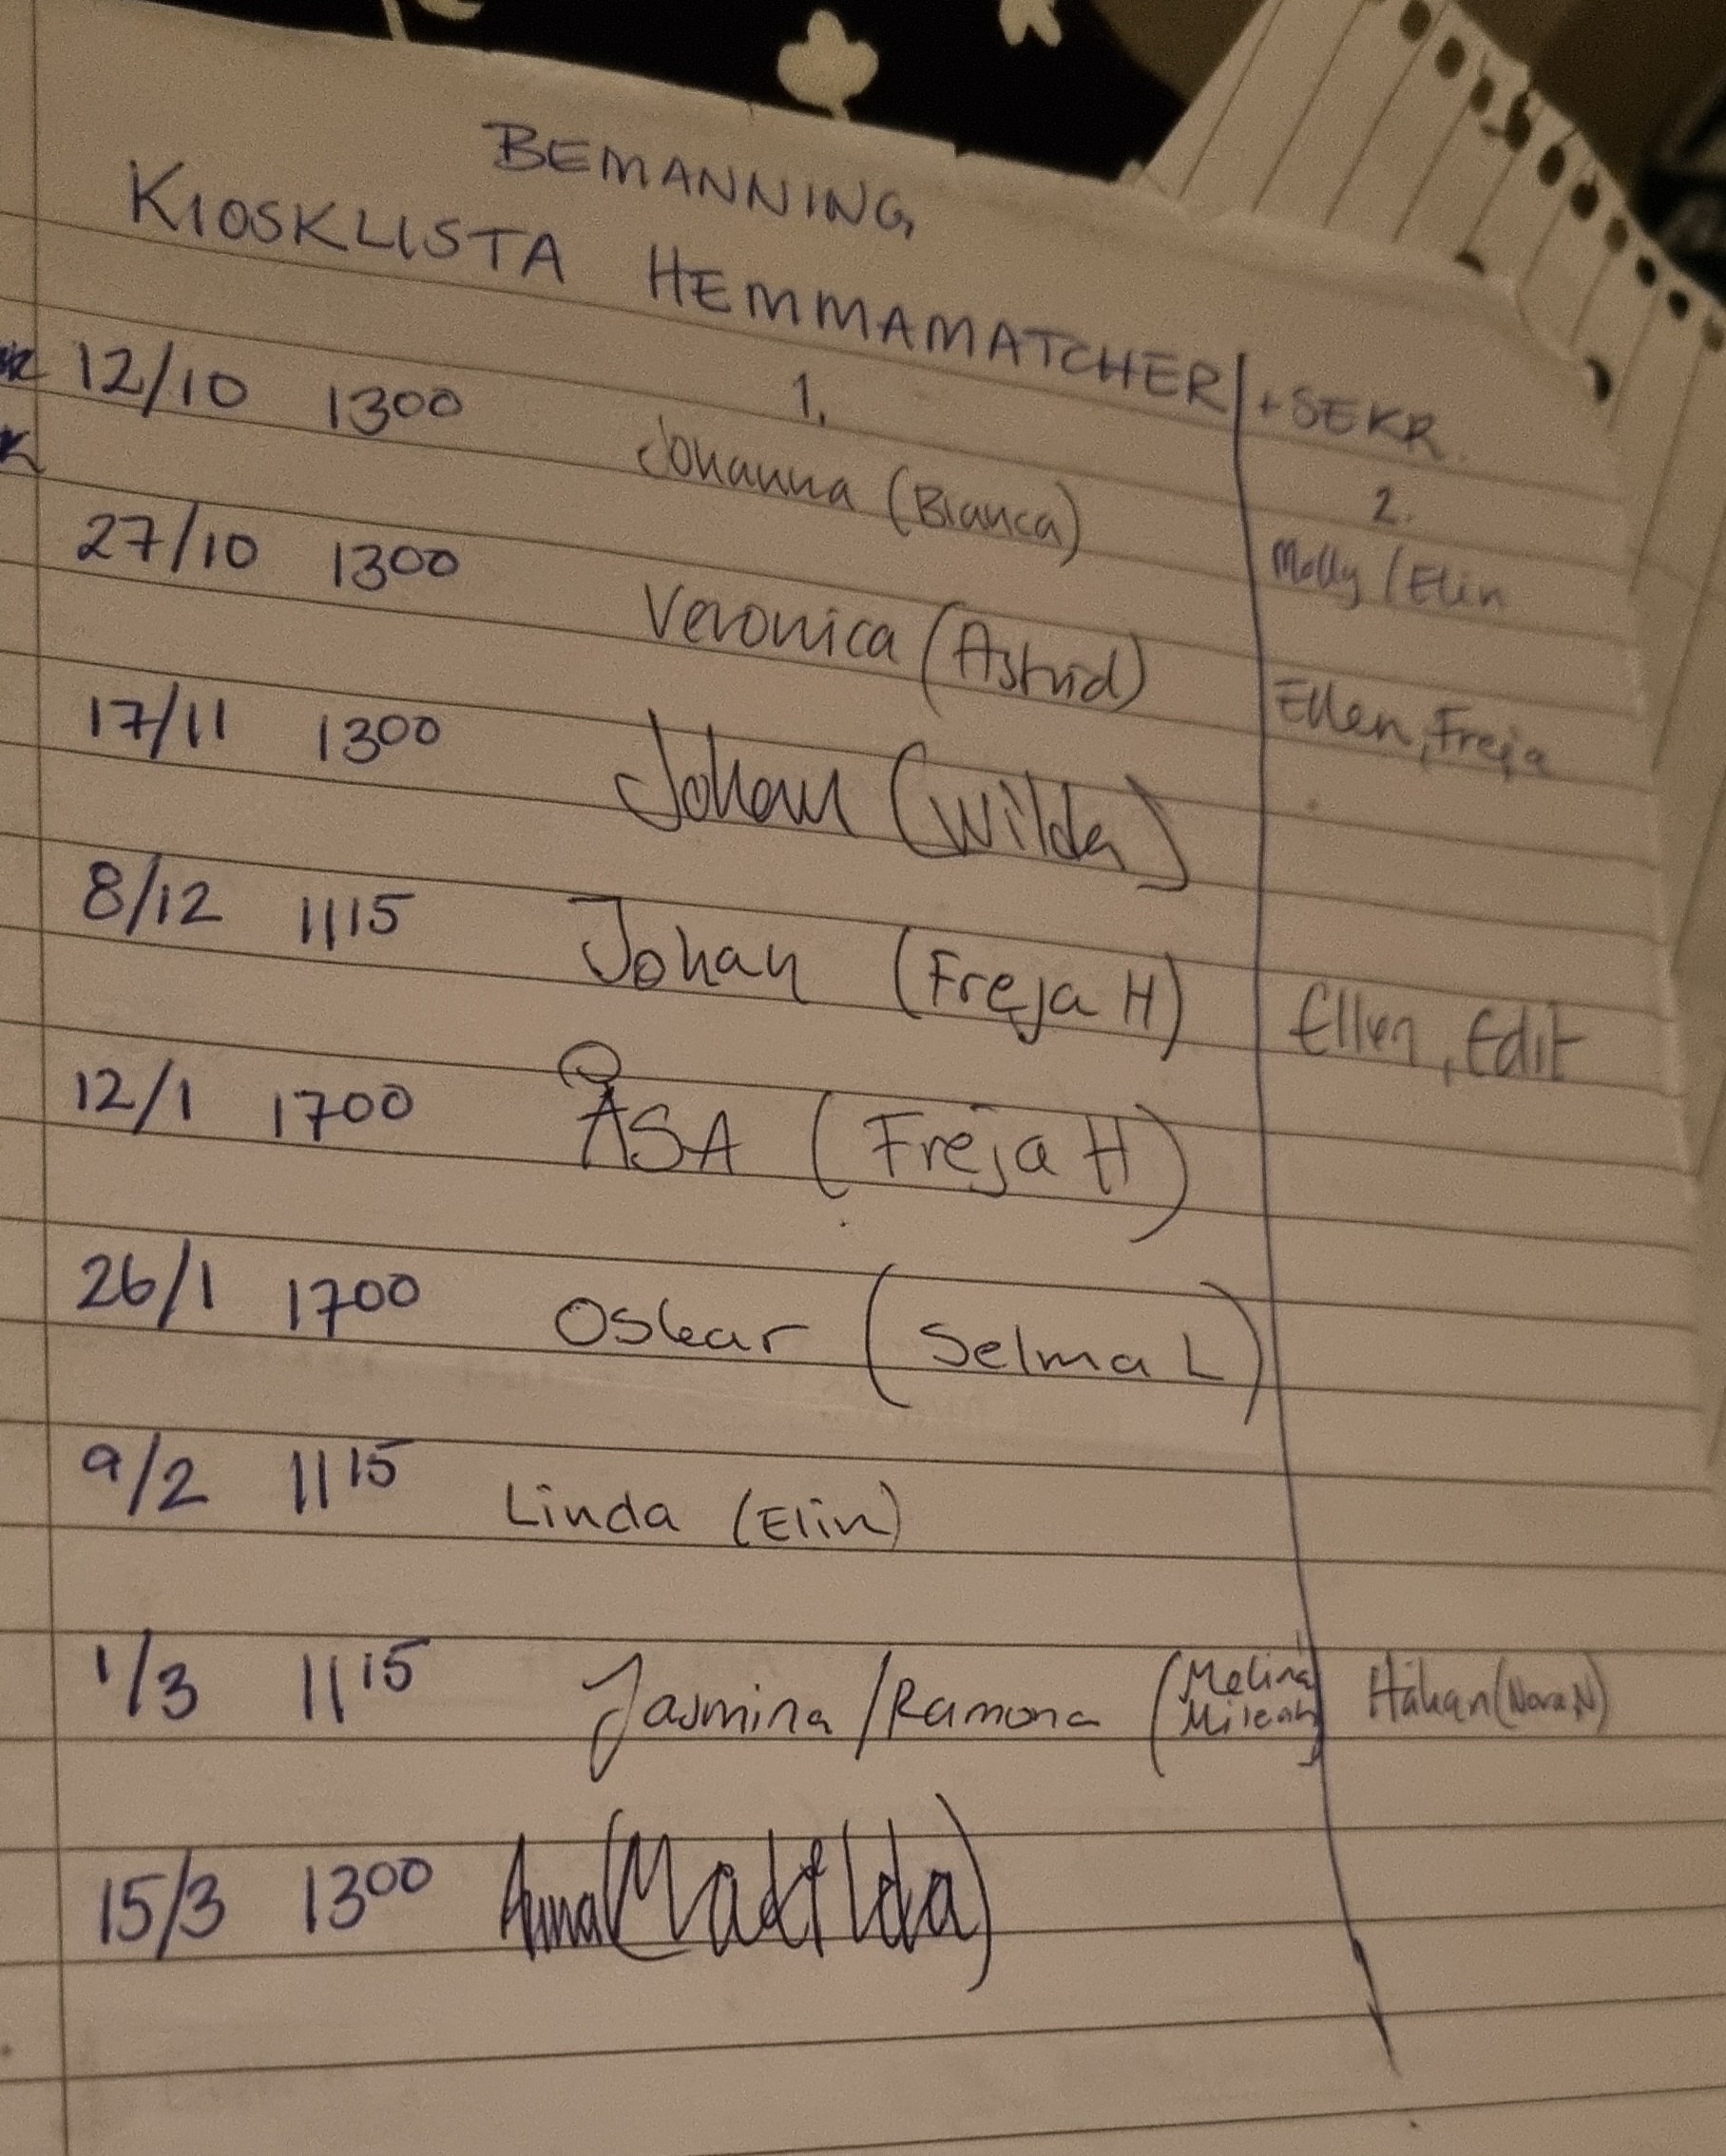 BEMANNING
KIOSKLISTA HEMMAMATCHER + SEKR.
1. 2.
12/10 1300 Johanna (Bianca) Molly / Elin
27/10 1300 Veronica (Astrid) Ellen, Freja
17/11 1300 Johan (Wilda)
8/12 1115 Johan (Freja H) Ellen, Edit
12/1 1700 ÅSA (Freja H)
26/1 1700 Oskar (Selma L)
9/2 1115 Linda (Elin)
1/3 1115 Jasmina / Ramona (Melina Håkan (Nora N)
15/3 1300 Anna (Matilda)